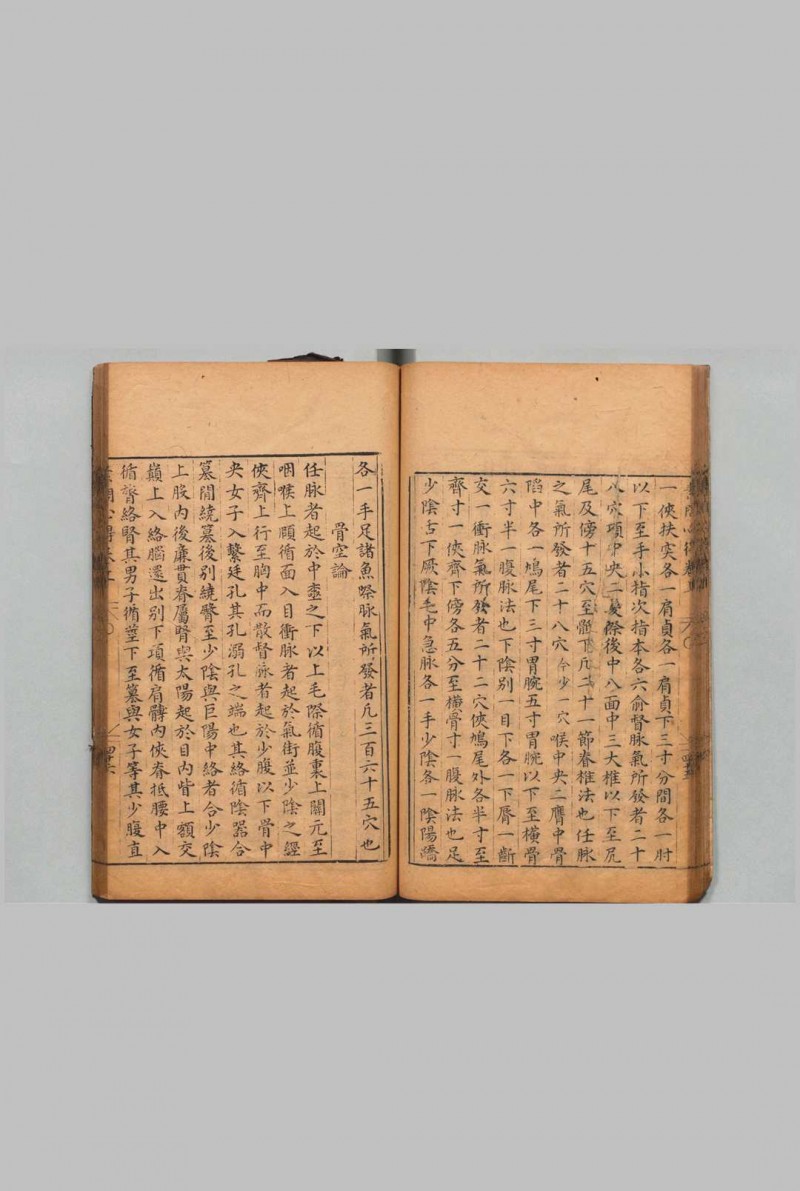 一俠扶突各一肩貞各一肩貞下三寸分間各一肘
以下至手小指次指本各六俞督脉氣所發者二十
八穴項中央二髮際後中八面中三大椎以下至尻
尾及傍十五穴至骶下凡二十一節脊椎法也任脉
之氣所發者二十八穴今少一穴喉中央二膺中骨
陷中各一鳩尾下三寸胃脘五寸胃脘以下至橫骨
六寸半一腹脉法也下陰別一目下各一下唇一斷
交一衝脉氣所發者二十二穴俠鳩尾外各半寸至
齊寸一俠齊下傍各五分至橫骨寸一腹脉法也足
少陰舌下厥陰毛中急脉各一手少陰各一陰陽蹻
各一手足諸魚際脉氣所發者凡三百六十五穴也
骨空論
任脉者起於中壺之下以上毛際循腹裏上關元至
咽喉上頤循面入目衝脉者起於氣街並少陰之經
俠齊上行至胸中而散督脉者起於少腹以下骨中
央女子入繫廷孔其孔溺孔之端也其絡循陰器合
篡間繞篡後別繞臀至少陰與巨陽中絡者合少陰
上股內後廉貫脊屬腎與太陽起於目內眥上額交
巔上入絡腦還出別下項循肩髆內俠脊抵腰中入
循膂絡腎其男子循莖下至篡與女子等其少腹直